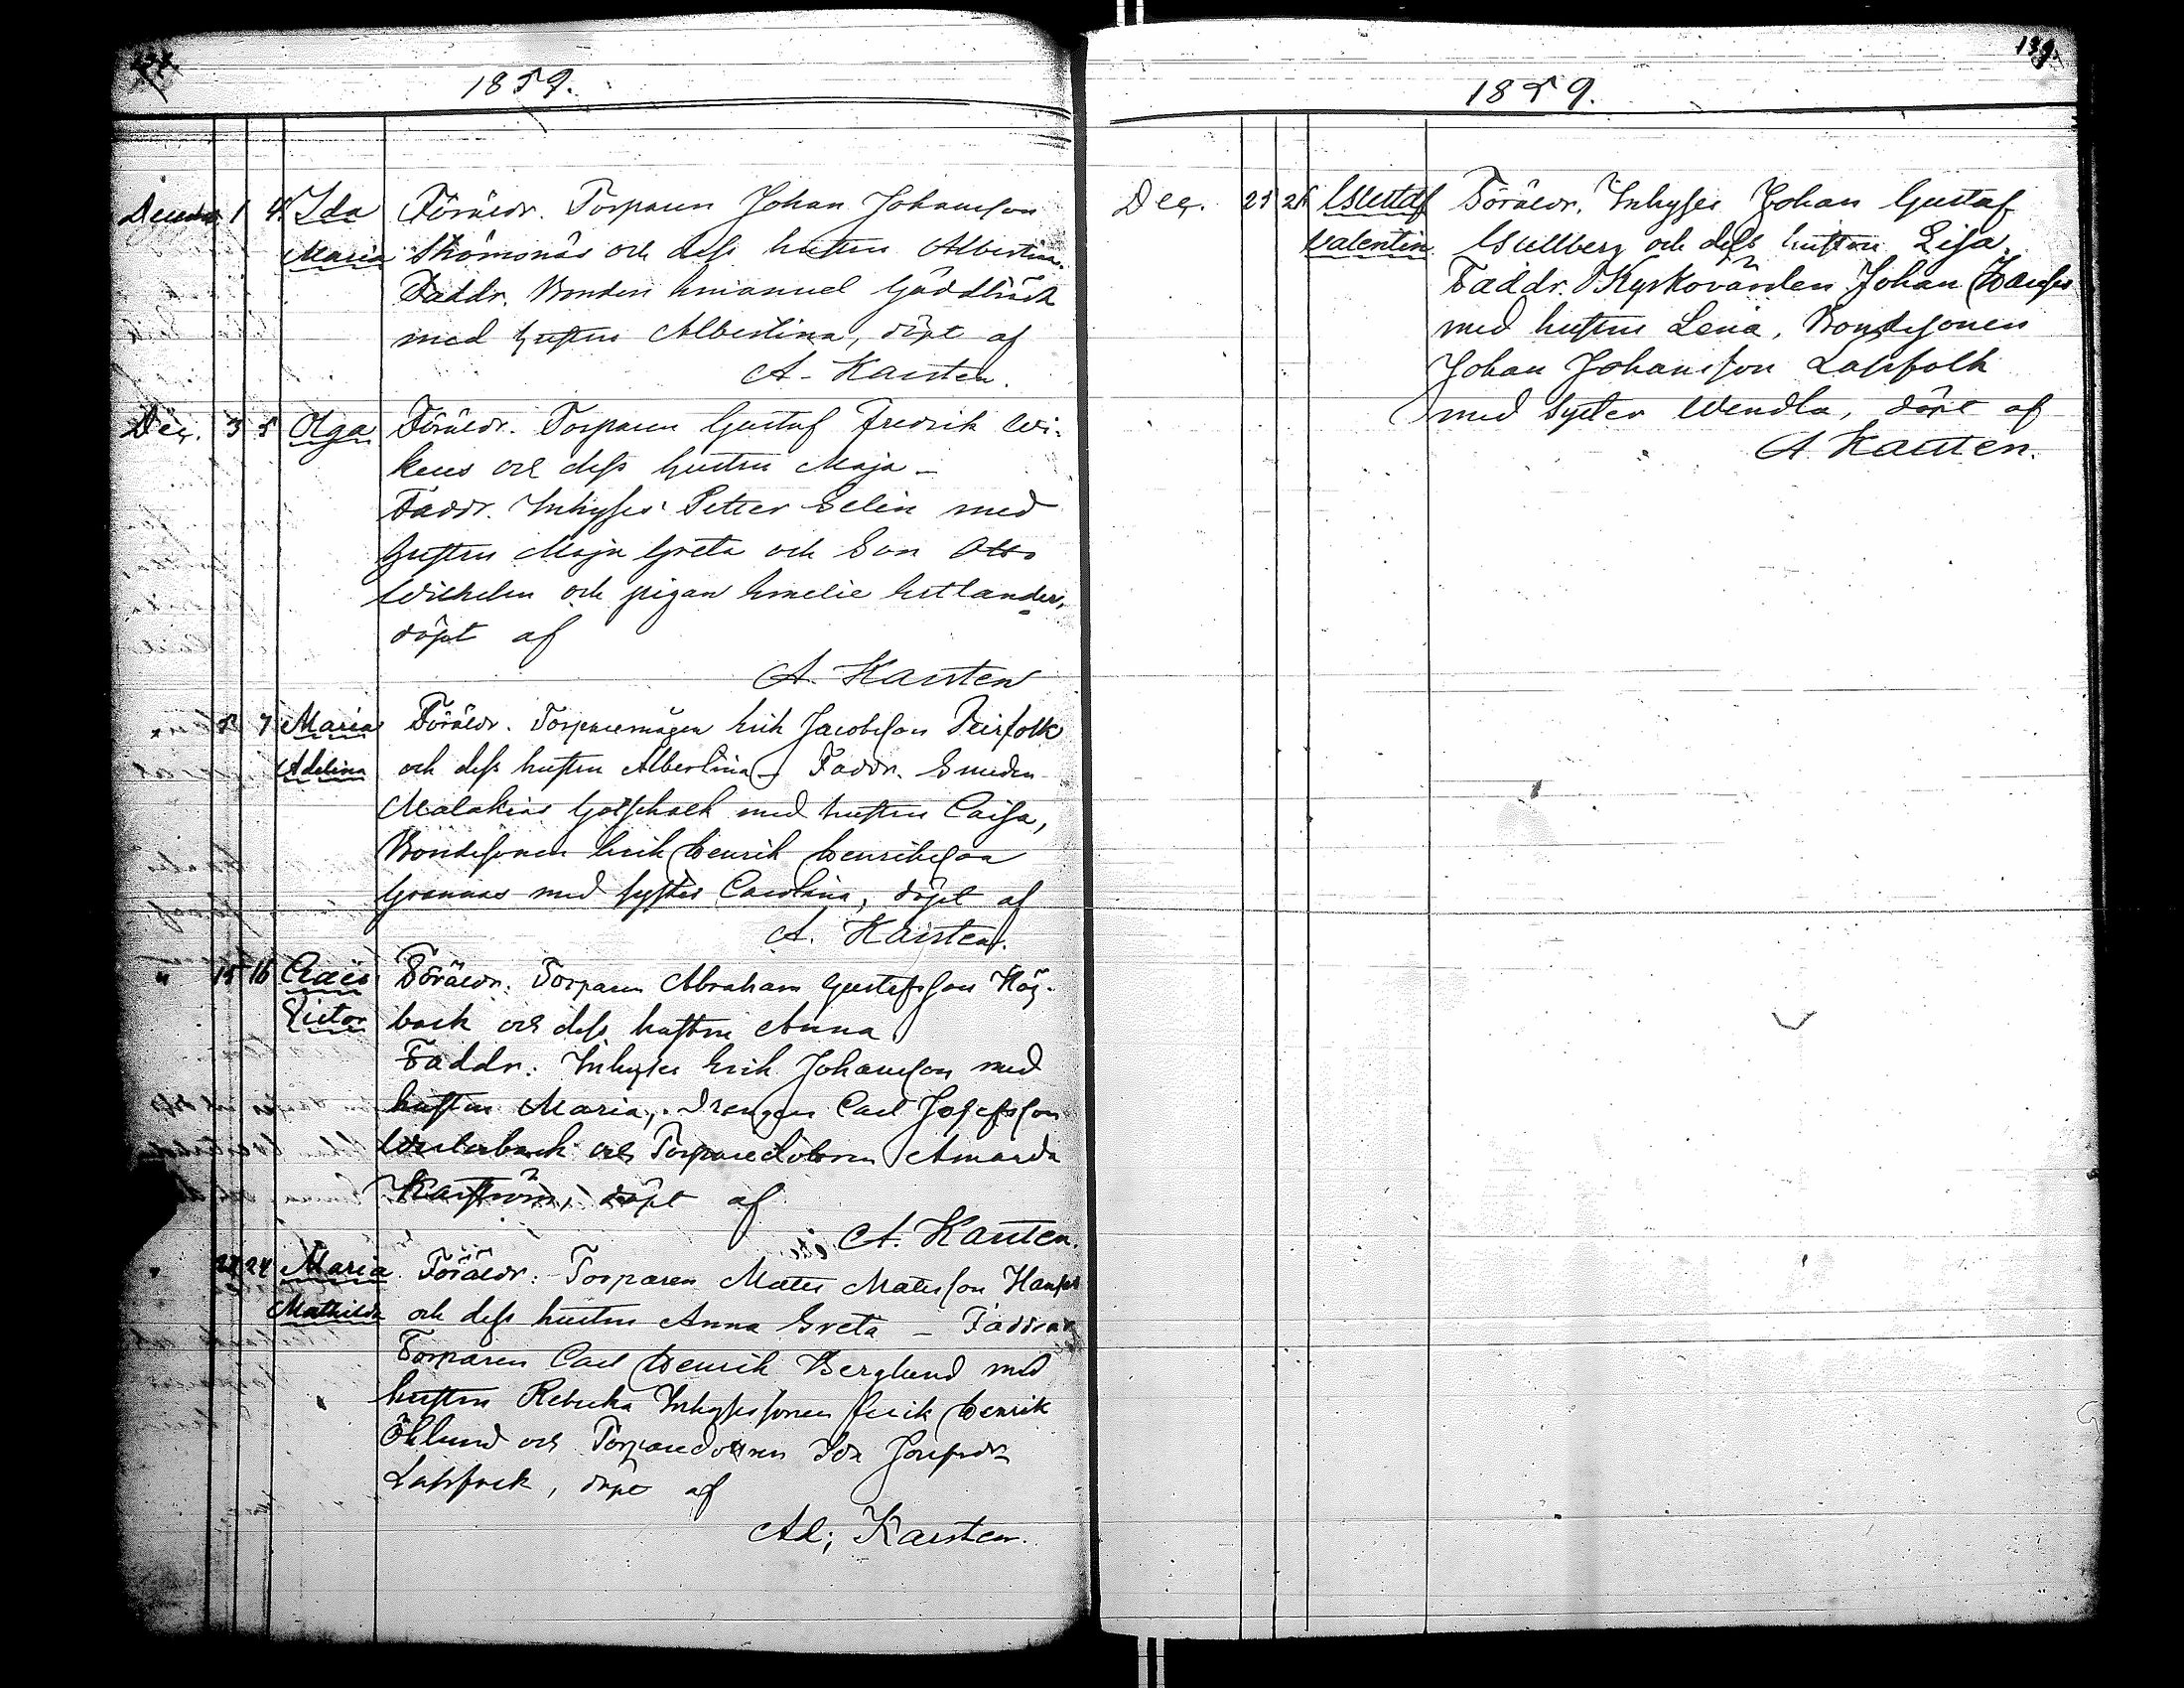 1859.
Decembr 1 4. Ida Föräldr. Torparen Johan Johansson
Maria Strömsnäs och dess hustru Albertina.
Faddr. Bonden Emanuel Gäddbäck
med hustru Albertina, döpt af
A. Karsten.
Dec. 3 5 Olga Föräldr. Torparen Gustaf Fredrik Wi-
kens och dess hustru Maja –
Faddr. Inhyses Petter Selin med
hustru Maja Greta och Son Otto
Wilhelm och pigan Emelie
döpt af
A. Karsten
5 7 Maria Föräldr. Torparemågen Erik Jacobsson
Adelina och dess hustru Albertina – Faddr. Smeden
Malakias Gotschalk med hustru Caisa,
Bondesonen Erik Henrik Henriksson
Grannas med syster Carolina, döpt af
A. Karsten.
" 15 16 Claës Föräldr. Torparen Abraham Gustafsson Hög-
Victor back och dess hustru Anna
Faddr. Inhyses Erik Johansson med
hustru Maria, Drengen Carl Josefsson
Westerback och Torparedottren Amanda
Karström, döpt af
A. Karsten.
" 24 Maria Föräldr. Torparen Matts Mattsson
Mathilda och dess hustru Anna Greta – Faddrar
Torparen Carl Henrik Berglund med
hustru Rebecka Inhysessonen Erik Henrik
Öhlund och Torparedottren Ida Josefsdr
Lappfolk, döpt af
Ad; Karsten.
139.
1859.
Dec. 25 26 Gustaf Föräldr. Inhyses Johan Gustaf
Valentin Gullberg och dess hustru Lisa.
Faddr. Kyrkovärden Johan
med hustru Lena, Bondesonen
Johan Johansson Lappfolk
med syster Wendla, döpt af
A. Karsten.